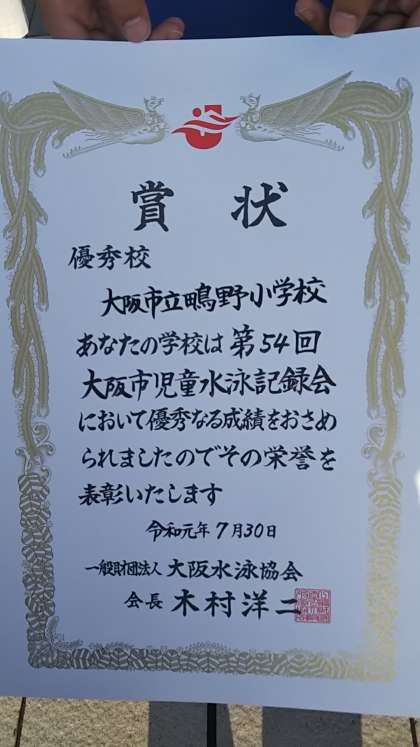 賞状
優秀校
大阪市立鴫野小学校
あなたの学校は第54回
大阪市児童水泳記録会
において優秀なる成績をおさめ
られましたのでその栄誉を
表彰いたします
令和元年7月30日
一般財団法人 大阪水泳協会
会長 木村洋二